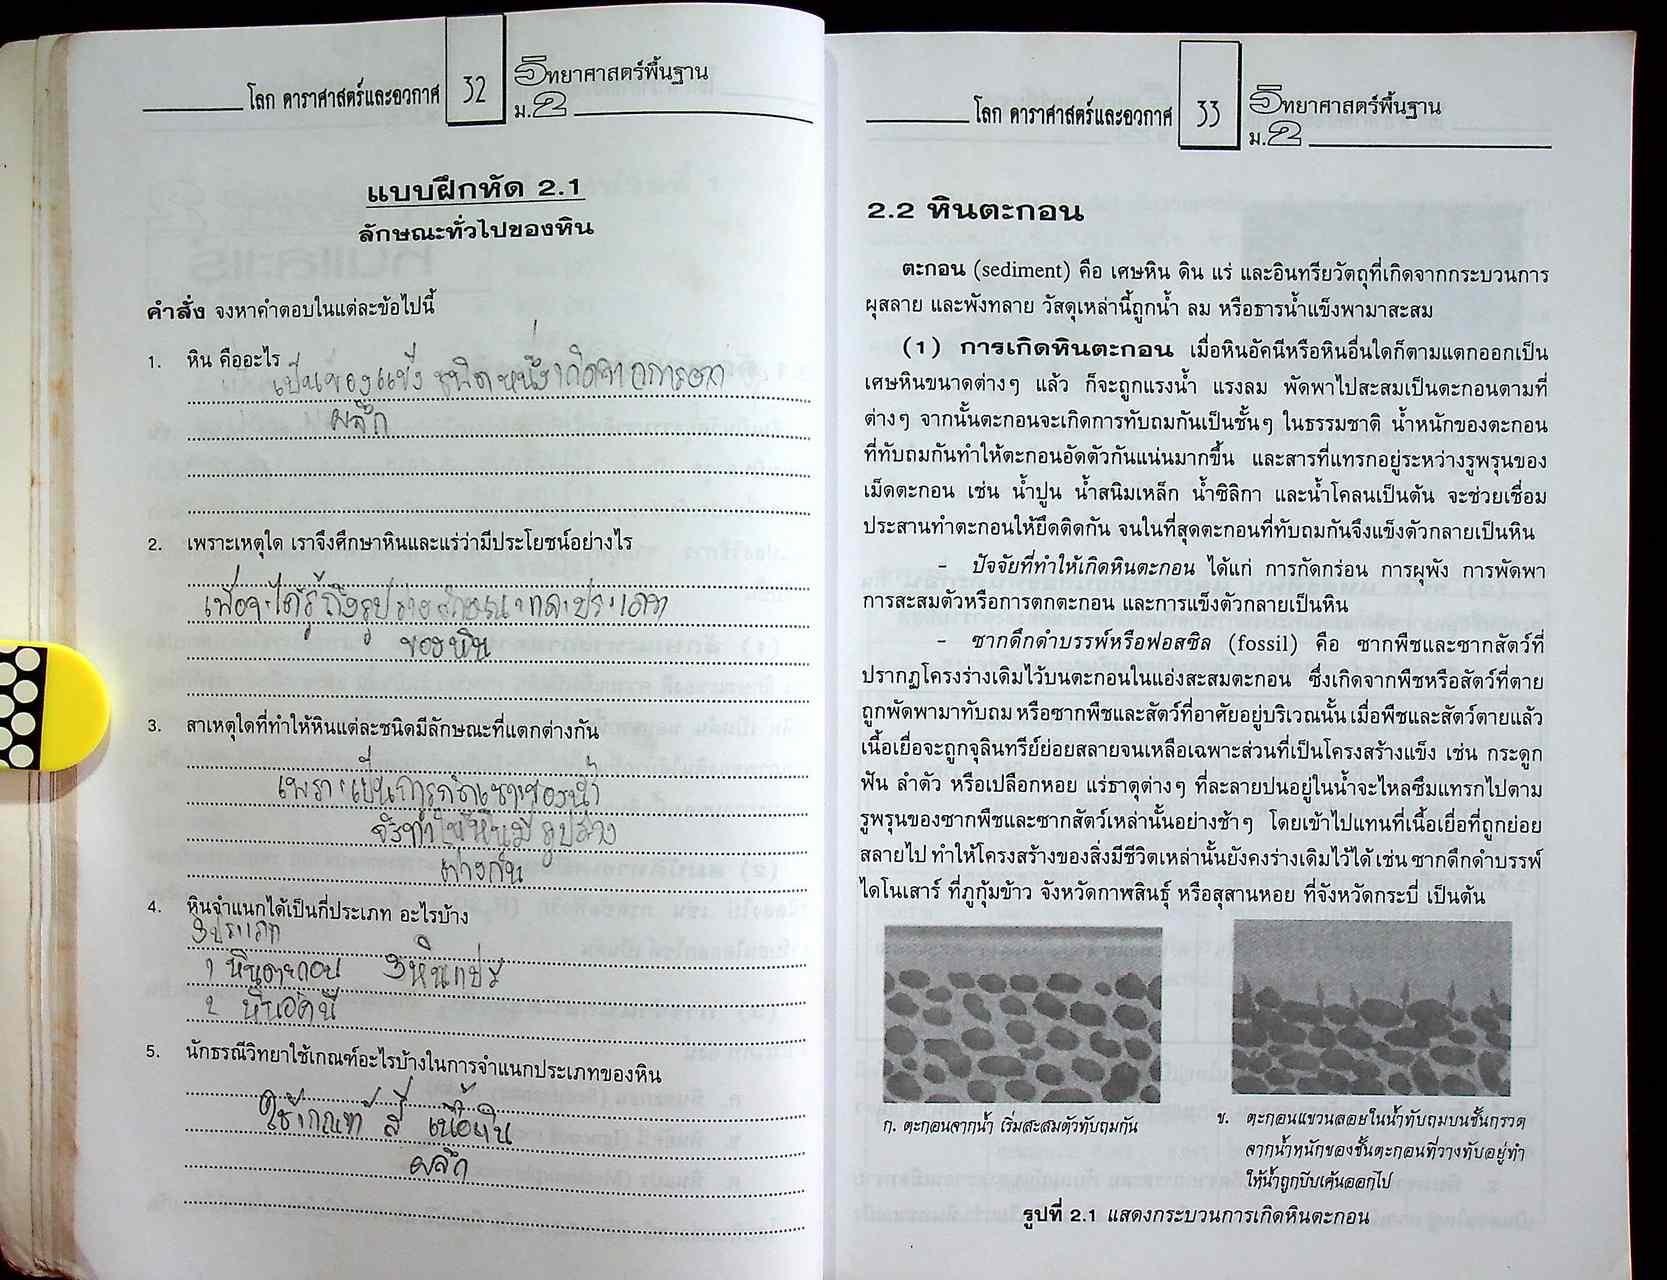 โลก ดาราศาสตร์และอวกาศ 32 วิทยาศาสตร์พื้นฐาน ม.2
แบบฝึกหัด 2.1
ลักษณะทั่วไปของหิน
คำสั่ง จงหาคำตอบในแต่ละข้อไปนี้
1. หิน คืออะไร
เป็นของแข็ง ชนิดหนึ่งเกิดจากการตก
ผลึก
2. เพราะเหตุใด เราจึงศึกษาหินและแร่ว่ามีประโยชน์อย่างไร
เพื่อจะได้รู้ถึงรูปร่างลักษณะและประเภท
ของหิน
3. สาเหตุใดที่ทำให้หินแต่ละชนิดมีลักษณะที่แตกต่างกัน
เพราะเป็นการกัดเซาะของน้ำ
จึงทำให้หินมีรูปร่าง
ต่างกัน
4. หินจำแนกได้เป็นกี่ประเภท อะไรบ้าง
3ประเภท
1 หินตะกอน 3หินแปร
2 หินอัคนี
5. นักธรณีวิทยาใช้เกณฑ์อะไรบ้างในการจำแนกประเภทของหิน
ใช้เกณฑ์ สี เนื้อหิน
ผลึก
โลก ดาราศาสตร์และอวกาศ 33 วิทยาศาสตร์พื้นฐาน ม.2
2.2 หินตะกอน
ตะกอน (sediment) คือ เศษหิน ดิน แร่ และอินทรียวัตถุที่เกิดจากกระบวนการ
ผุสลาย และพังทลาย วัสดุเหล่านี้ถูกน้ำ ลม หรือธารน้ำแข็งพามาสะสม
(1) การเกิดหินตะกอน เมื่อหินอัคนีหรือหินอื่นใดก็ตามแตกออกเป็น
เศษหินขนาดต่างๆ แล้ว ก็จะถูกแรงน้ำ แรงลม พัดพาไปสะสมเป็นตะกอนตามที่
ต่างๆ จากนั้นตะกอนจะเกิดการทับถมกันเป็นชั้นๆ ในธรรมชาติ น้ำหนักของตะกอน
ที่ทับถมกันทำให้ตะกอนอัดตัวกันแน่นมากขึ้น และสารที่แทรกอยู่ระหว่างรูพรุนของ
เม็ดตะกอน เช่น น้ำปูน น้ำสนิมเหล็ก น้ำซิลิกา และน้ำโคลนเป็นต้น จะช่วยเชื่อม
ประสานทำตะกอนให้ยึดติดกัน จนในที่สุดตะกอนที่ทับถมกันจึงแข็งตัวกลายเป็นหิน
- ปัจจัยที่ทำให้เกิดหินตะกอน ได้แก่ การกัดกร่อน การผุพัง การพัดพา
การสะสมตัวหรือการตกตะกอน และการแข็งตัวกลายเป็นหิน
- ซากดึกดำบรรพ์หรือฟอสซิล (fossil) คือ ซากพืชและซากสัตว์ที่
ปรากฏโครงร่างเดิมไว้บนตะกอนในแอ่งสะสมตะกอน ซึ่งเกิดจากพืชหรือสัตว์ที่ตาย
ถูกพัดพามาทับถม หรือซากพืชและสัตว์ที่อาศัยอยู่บริเวณนั้น เมื่อพืชและสัตว์ตายแล้ว
เนื้อเยื่อจะถูกจุลินทรีย์ย่อยสลายจนเหลือเฉพาะส่วนที่เป็นโครงสร้างแข็ง เช่น กระดูก
ฟัน ลำตัว หรือเปลือกหอย แร่ธาตุต่างๆ ที่ละลายปนอยู่ในน้ำจะไหลซึมแทรกไปตาม
รูพรุนของซากพืชและซากสัตว์เหล่านั้นอย่างช้าๆ โดยเข้าไปแทนที่เนื้อเยื่อที่ถูกย่อย
สลายไป ทำให้โครงสร้างของสิ่งมีชีวิตเหล่านั้นยังคงร่างเดิมไว้ได้ เช่น ซากดึกดำบรรพ์
ไดโนเสาร์ ที่ภูกุ้มข้าว จังหวัดกาฬสินธุ์ หรือสุสานหอย ที่จังหวัดกระบี่ เป็นต้น
ก. ตะกอนจากน้ำ เริ่มสะสมตัวทับถมกัน
ข. ตะกอนแขวนลอยในน้ำทับถมบนชั้นกรวด
จากน้ำหนักของชั้นตะกอนที่วางทับอยู่ทำ
ให้น้ำถูกบีบเค้นออกไป
รูปที่ 2.1 แสดงกระบวนการเกิดหินตะกอน